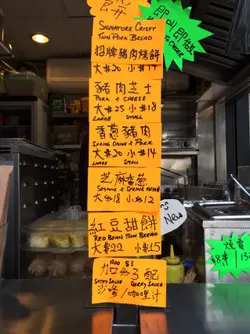 即叫即做
SIGNATURE CRISPY
THIN PORK BREAD
招牌豬肉燒餅
大$20 小$14
豬肉芝士
PORK & CHEESE
大$25 小$18
LARGE SMALL
香蔥豬肉
SPRING ONION & PORK
大$20 小$14
LARGE SMALL
芝麻香蔥
SESAME & SPRING ONION
大$18 小$12
紅豆甜餅
RED BEAN THIN BREAD
大$22 小$15
ADD $3
加$3配
SATAY SAUCE CURRY SAUCE
沙嗲/咖哩汁
New